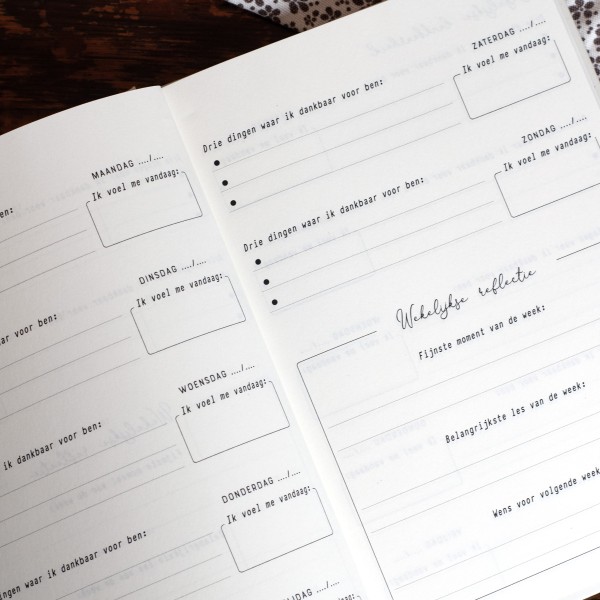 MAANDAG ..../....
ben:
Ik voel me vandaag:
DINSDAG ..../....
voor ben:
Ik voel me vandaag:
WOENSDAG ..../....
ik dankbaar voor ben:
Ik voel me vandaag:
DONDERDAG ..../....
ingen waar ik dankbaar voor ben:
Ik voel me vandaag:
IJDAG ..../....
ZATERDAG ..../....
Drie dingen waar ik dankbaar voor ben:
Ik voel me vandaag:
ZONDAG ..../....
Drie dingen waar ik dankbaar voor ben:
Ik voel me vandaag:
Wekelijkse reflectie
Fijnste moment van de week:
Belangrijkste les van de week:
Wens voor volgende week